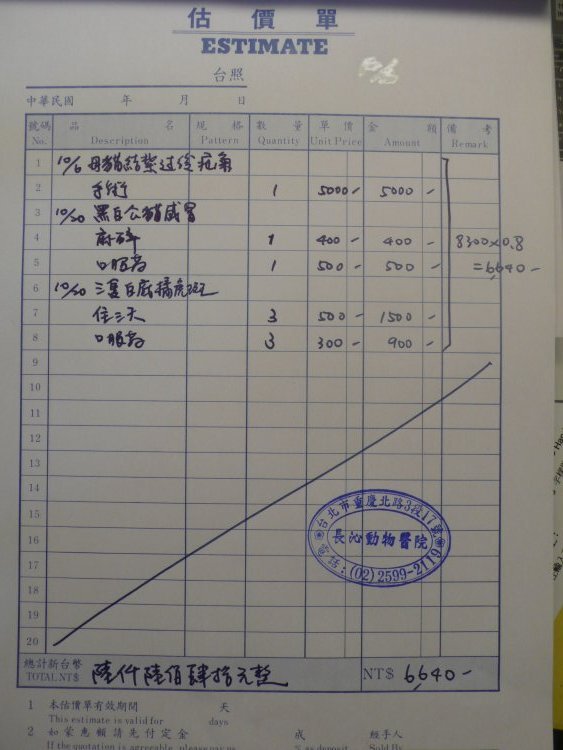 估價單
ESTIMATE
台照
中華民國 年 月 日
號碼 品名 規格 數量 單價 金額 備考
No. Description Pattern Quantity Unit Price Amount Remark
1 10/6 母貓結紮过後疝氣
2 手術 1 5000- 5000-
3 10/20 黑白公貓感冒
4 1 400- 400- 8300×0.8
5 口服葯 1 500- 500- =6640-
6 10/20 三隻白底橘虎斑
7 住三天 3 500- 1500-
8 口服葯 3 300- 900-
9
10
11
12
13
14
15
16
17
18
19
20
台北市重慶北路3段17號
長沁動物醫院
電話:(02)2599-2119
總計新台幣 陸仟陸佰肆拾元整 NT$ 6640-
TOTAL NT$
1 本估價單有效期間 天
This estimate is valid for days
2 如蒙惠顧請先付定金 成 經手人
If the quotation is agreeable, please pay us % as deposit Sold By